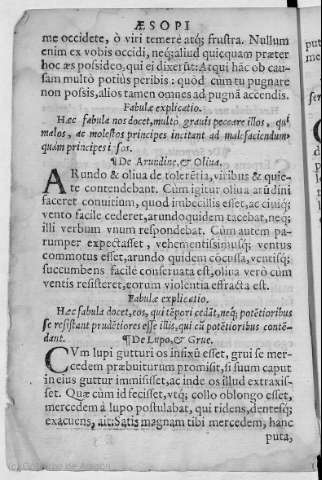 ÆSOPI
me occidete, ò viri temere atq; frustra. Nullum
enim ex vobis occidi, neq; aliud quicquam præter
hoc æs possideo, qui ei dixerūt: Atqui hāc ob cau-
sam multò potiùs peribis: quòd cùm tu pugnare
non possis, alios tamen omnes ad pugnā accendis.
Fabulæ explicatio.
Hæc fabula nos docet, multò gravis peccare illos, qui
malos, ac molestos principes incitant ad malefaciendum
quàm principes ipsos.
¶De Arundine, & Oliua.
ARundo & oliua de tolerētia, viribus & quie-
te contendebant. Cùm igitur oliua arūdini
faceret conuitium, quòd imbecillis esset, ac cuiuq;
vento facilè cederet, arundo quidem tacebat, neq;
illi verbum vnum respondebat. Cùm autem pa-
rumper expectasset, vehementissimusq; ventus
commotus esset, arundo quidem cōcussa, vētisq;
succumbens facilè conseruata est, oliua verò cùm
ventis resisteret, eorum violentia effracta est.
Fabulæ explicatio.
Hæc fabula docet, eos, qui tēpori cedāt, neq; potētioribus
se resistant prudētiores esse illis, qui cū potētioribus contē-
dant. ¶De Lupo, & Grue.
CVm lupi gutturi os infixū esset, grui se mer-
cedem præbuiturum promisit, si suum caput
in eius guttur immisisset, ac inde os illud extraxis-
set. Quæ cùm id fecisset, vtq; collo oblongo esset,
mercedem à lupo postulabat, qui ridens, dentesq;
exacuens, ait: Satis magnam tibi mercedem, hanc
puta,